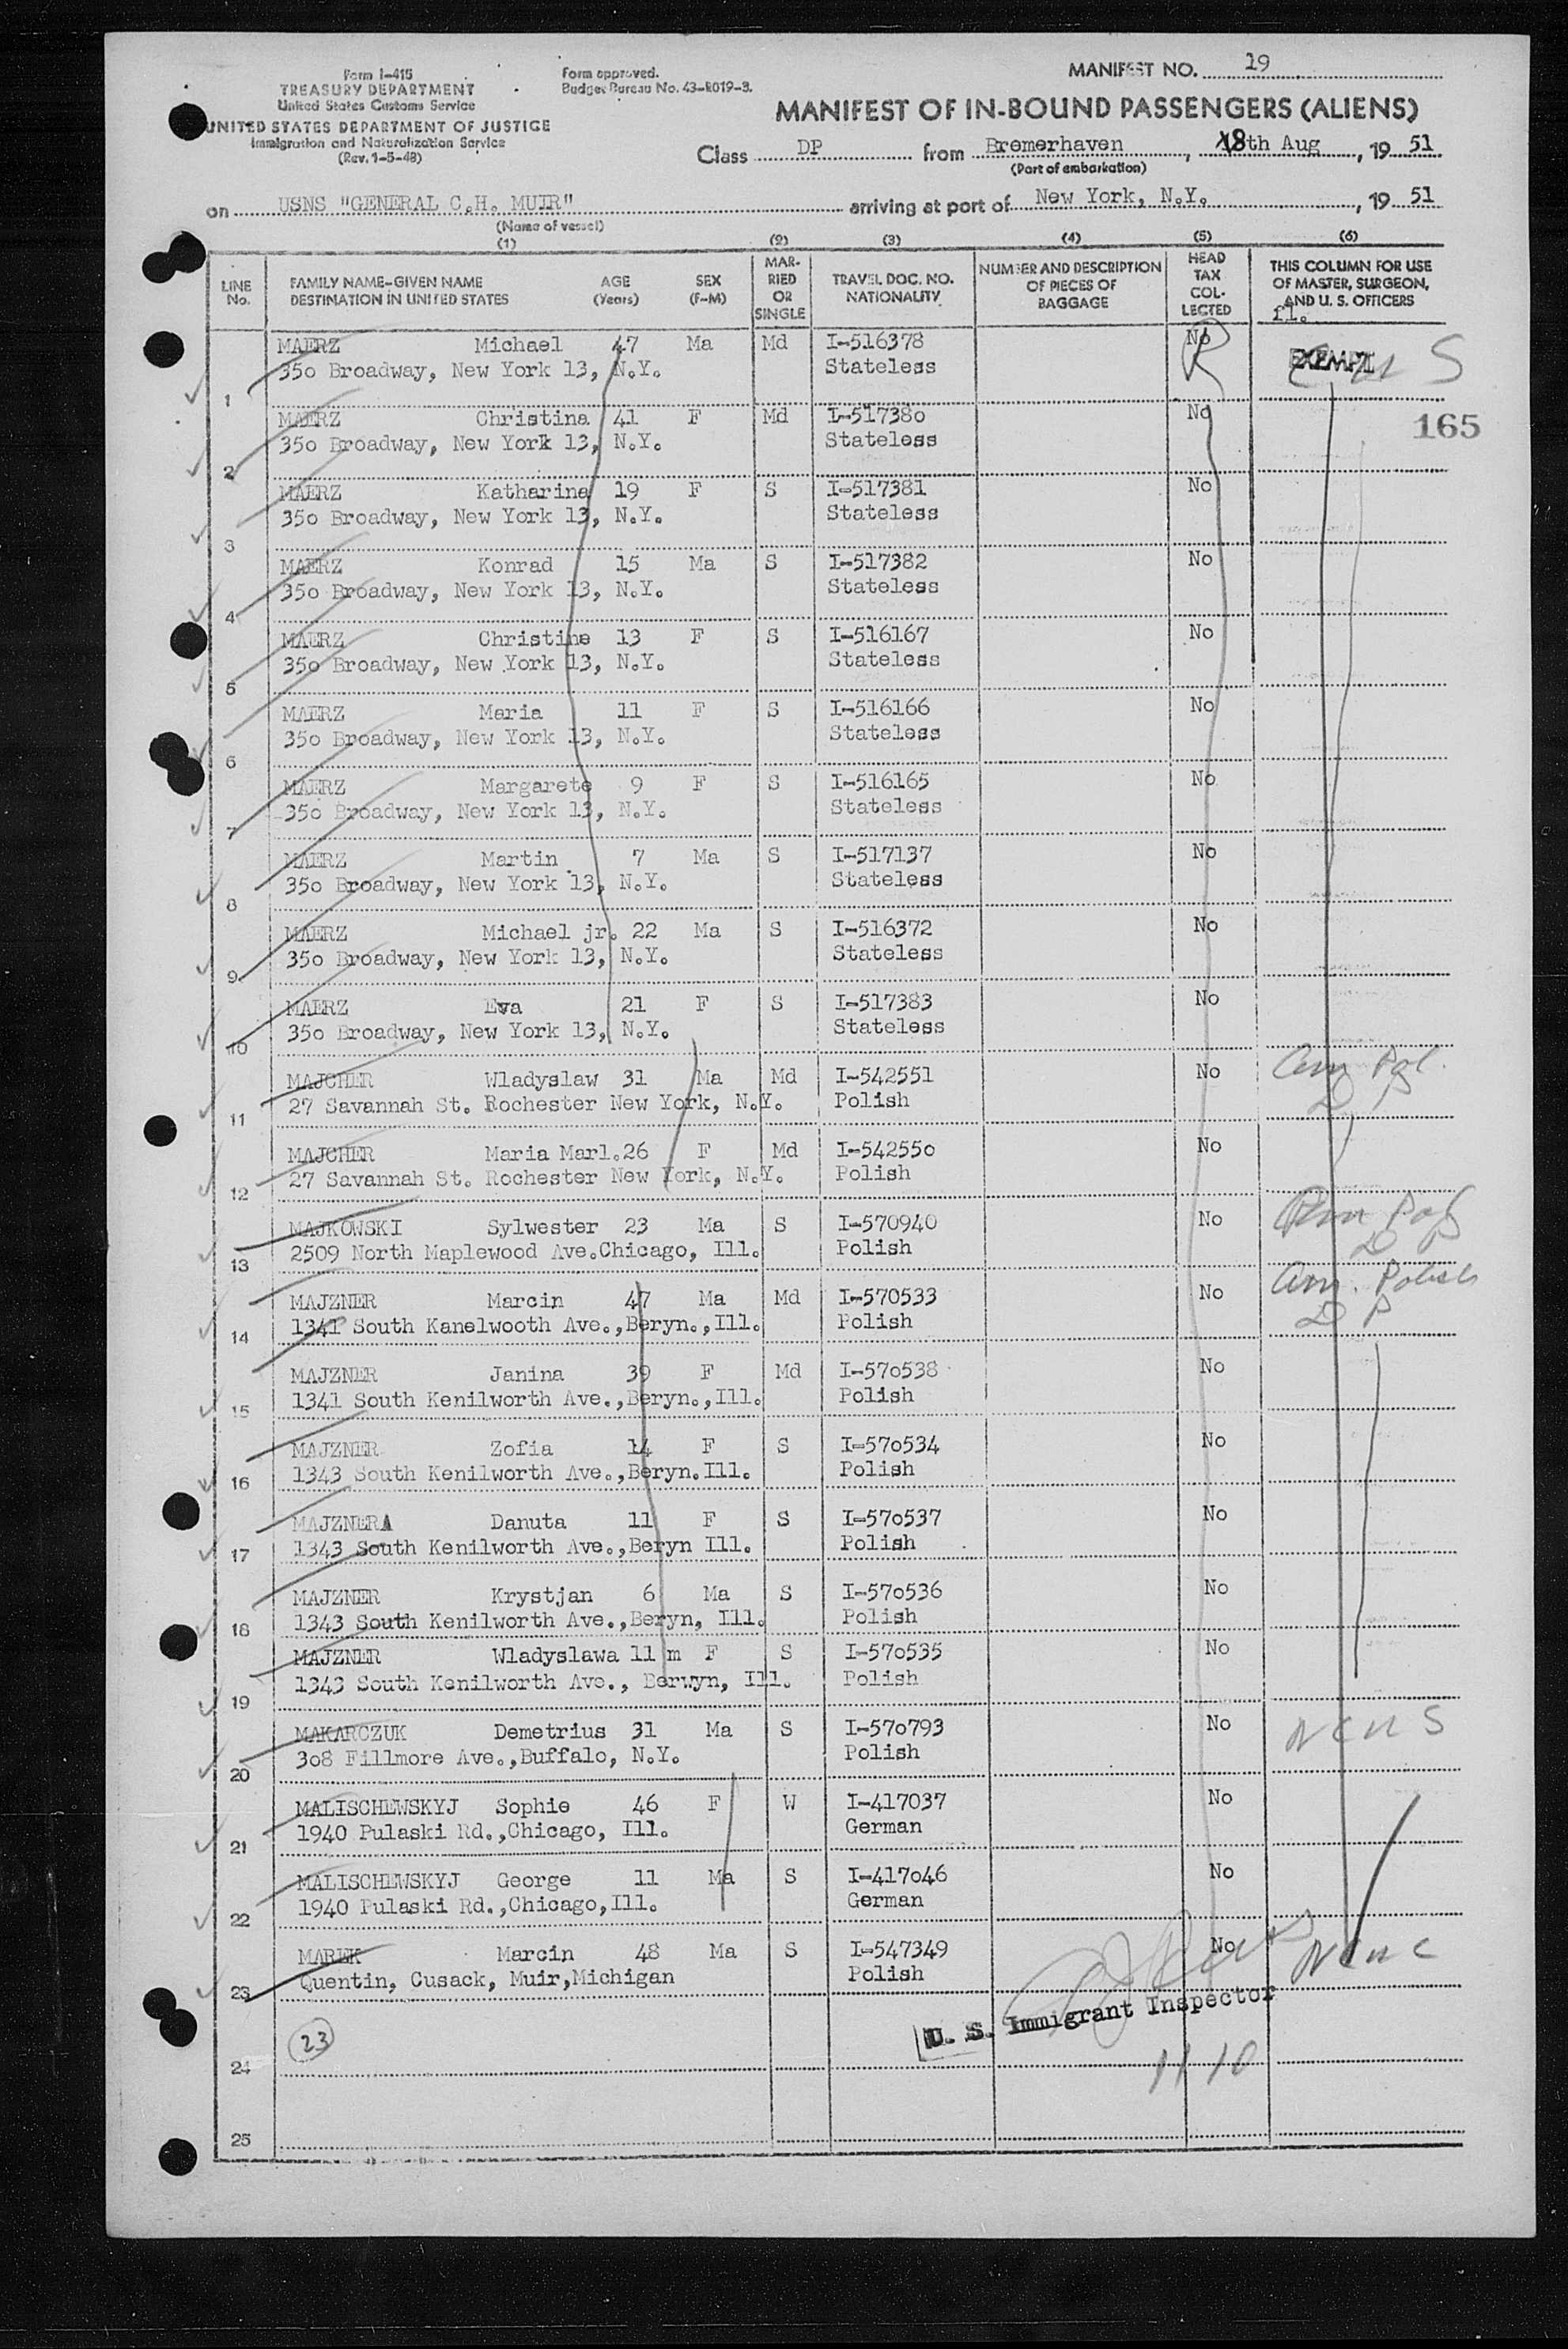 Form I-415
TREASURY DEPARTMENT
United States Customs Service
UNITED STATES DEPARTMENT OF JUSTICE
Immigration and Naturalization Service
(Rev. 1-5-48)
Form approved.
Budget Bureau No. 43-R019-3.
MANIFEST NO. 19
MANIFEST OF IN-BOUND PASSENGERS (ALIENS)
Class DP from Bremerhaven, 18th Aug, 19 51
(Port of embarkation)
on USNS "GENERAL C.H. MUIR" arriving at port of New York, N.Y., 19 51
(Name of vessel)
(1) (2) (3) (4) (5) (6)
LINE No. FAMILY NAME-GIVEN NAME DESTINATION IN UNITED STATES AGE (Years) SEX (F-M) MARRIED OR SINGLE TRAVEL DOC. NO. NATIONALITY NUMBER AND DESCRIPTION OF PIECES OF BAGGAGE HEAD TAX COLLECTED THIS COLUMN FOR USE OF MASTER, SURGEON, AND U. S. OFFICERS
MAERZ Michael 47 Ma Md I-516378 No EXEMPT
1 350 Broadway, New York 13, N.Y. Stateless
165
MAERZ Christina 41 F Md I-517380 No
2 350 Broadway, New York 13, N.Y. Stateless
MAERZ Katharina 19 F S I-517381 No
3 350 Broadway, New York 13, N.Y. Stateless
MAERZ Konrad 15 Ma S I-517382 No
4 350 Broadway, New York 13, N.Y. Stateless
MAERZ Christine 13 F S I-516167 No
5 350 Broadway, New York 13, N.Y. Stateless
MAERZ Maria 11 F S I-516166 No
6 350 Broadway, New York 13, N.Y. Stateless
MAERZ Margarete 9 F S I-516165 No
7 350 Broadway, New York 13, N.Y. Stateless
MAERZ Martin 7 Ma S I-517137 No
8 350 Broadway, New York 13, N.Y. Stateless
MAERZ Michael jr. 22 Ma S I-516372 No
9 350 Broadway, New York 13, N.Y. Stateless
MAERZ Eva 21 F S I-517383 No
10 350 Broadway, New York 13, N.Y. Stateless
MAJCHER Wladyslaw 31 Ma Md I-542551 No Am Pol.
11 27 Savannah St. Rochester New York, N.Y. Polish D P
MAJCHER Maria Marl. 26 F Md I-542550 No
12 27 Savannah St. Rochester New York, N.Y. Polish
MAJKOWSKI Sylwester 23 Ma S I-570940 No Am Pol
13 2509 North Maplewood Ave.Chicago, Ill. Polish D P
MAJZNER Marcin 47 Ma Md I-570533 No Am. Polish
14 1341 South Kanelwooth Ave.,Beryn.,Ill. Polish D P
MAJZNER Janina 39 F Md I-570538 No
15 1341 South Kenilworth Ave.,Beryn.,Ill. Polish
MAJZNER Zofia 14 F S I-570534 No
16 1343 South Kenilworth Ave.,Beryn.Ill. Polish
MAJZNERA Danuta 11 F S I-570537 No
17 1343 South Kenilworth Ave.,Beryn Ill. Polish
MAJZNER Krystjan 6 Ma S I-570536 No
18 1343 South Kenilworth Ave.,Beryn, Ill. Polish
MAJZNER Wladyslawa 11 m F S I-570535 No
19 1343 South Kenilworth Ave., Berwyn, Ill. Polish
MAKARCZUK Demetrius 31 Ma S I-570793 No NCUS
20 308 Fillmore Ave.,Buffalo, N.Y. Polish
MALISCHEWSKYJ Sophie 46 F W I-417037 No
21 1940 Pulaski Rd.,Chicago, Ill. German
MALISCHEWSKYJ George 11 Ma S I-417046 No
22 1940 Pulaski Rd.,Chicago,Ill. German
MAREK Marcin 48 Ma S I-547349 No NCWC
23 Quentin, Cusack, Muir,Michigan Polish
U. S. Immigrant Inspector
23
24
1110
25